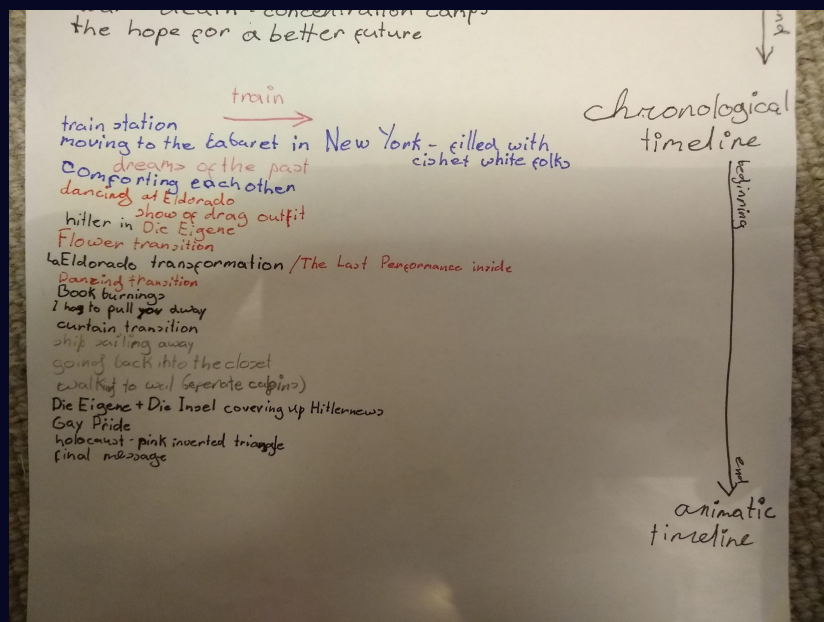 the hope for a better future
nd
train
chronological
timeline
train station
moving to the Cabaret in New York - filled with
cishet white folks
dreams of the past
Comforting eachother
dancing at Eldorado
show of drag outfit
hitler in Die Eigene
Flower transition
Eldorado transformation / The Last Performance inside
Danzing transition
Book burnings
I had to pull you away
curtain transition
ship sailing away
going back into the closet
walking to wall (seperate cabins)
Die Eigene + Die Insel covering up Hitlernews
Gay Pride
holocaust - pink inverted triangle
final message
beginning
end
animatic
timeline